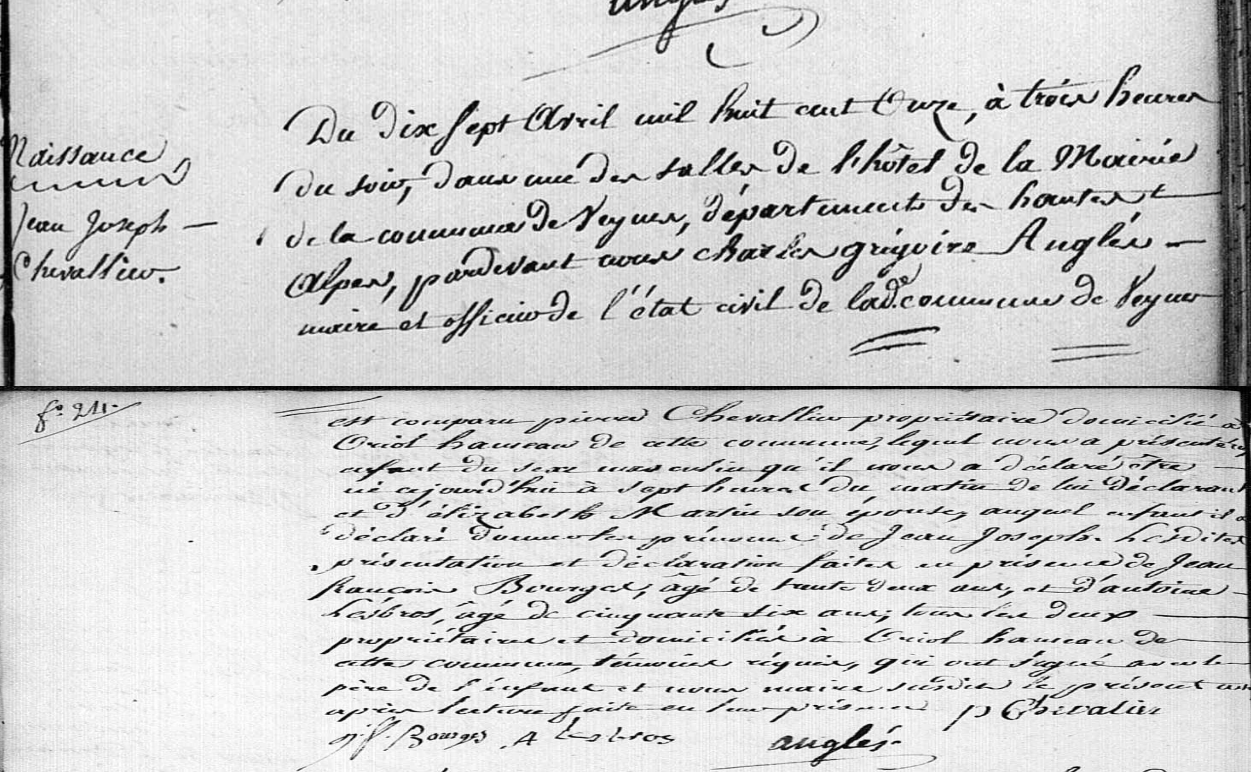 anglés
Naissance
Jean Joseph —
Chevallier.
Du dix sept Avril mil huit cent Onze, à trois heures
du soir, dans une des salles de l'hôtel de la Mairie
de la commune de Veynes, département des hautes
Alpes, pardevant nous charles grégoire Anglés —
maire et officier de l'état civil de lad.e commune de Veynes
f.o 211.
est comparu pierre Chevallier propriétaire domicilié à
Oriol hameau de cette commune, lequel nous a présenté un
enfant du sexe masculin qu'il nous a déclaré être —
né ajourd'hui à sept heures du matin de lui déclarant
et d'élizabeth Martin son épouse, auquel enfant il a
déclaré donner les prénoms de Jean Joseph. Lesdites
présentation et déclaration faites en présence de Jean
françois Bourges, âgé de trente deux ans, et d'antoine —
Lesbros, âgé de cinquante six ans, tous les deux —
propriétaires et domiciliés à Oriol hameau de
cette commune, témoins réquis, qui ont signé avec le
père de l'enfant et nous maire susdit le présent acte
après lecture faite en leur présence p Chevalier
j. f. Bourges A Lesbros anglés.